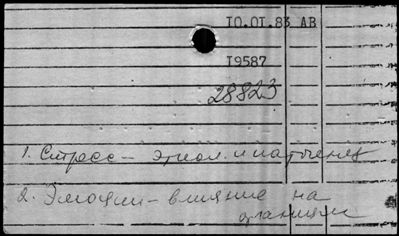 IO.OI.83 АВ
I9587
28823
1. Стресс – этиол. и патогенез
2. Эмоции – влияние на